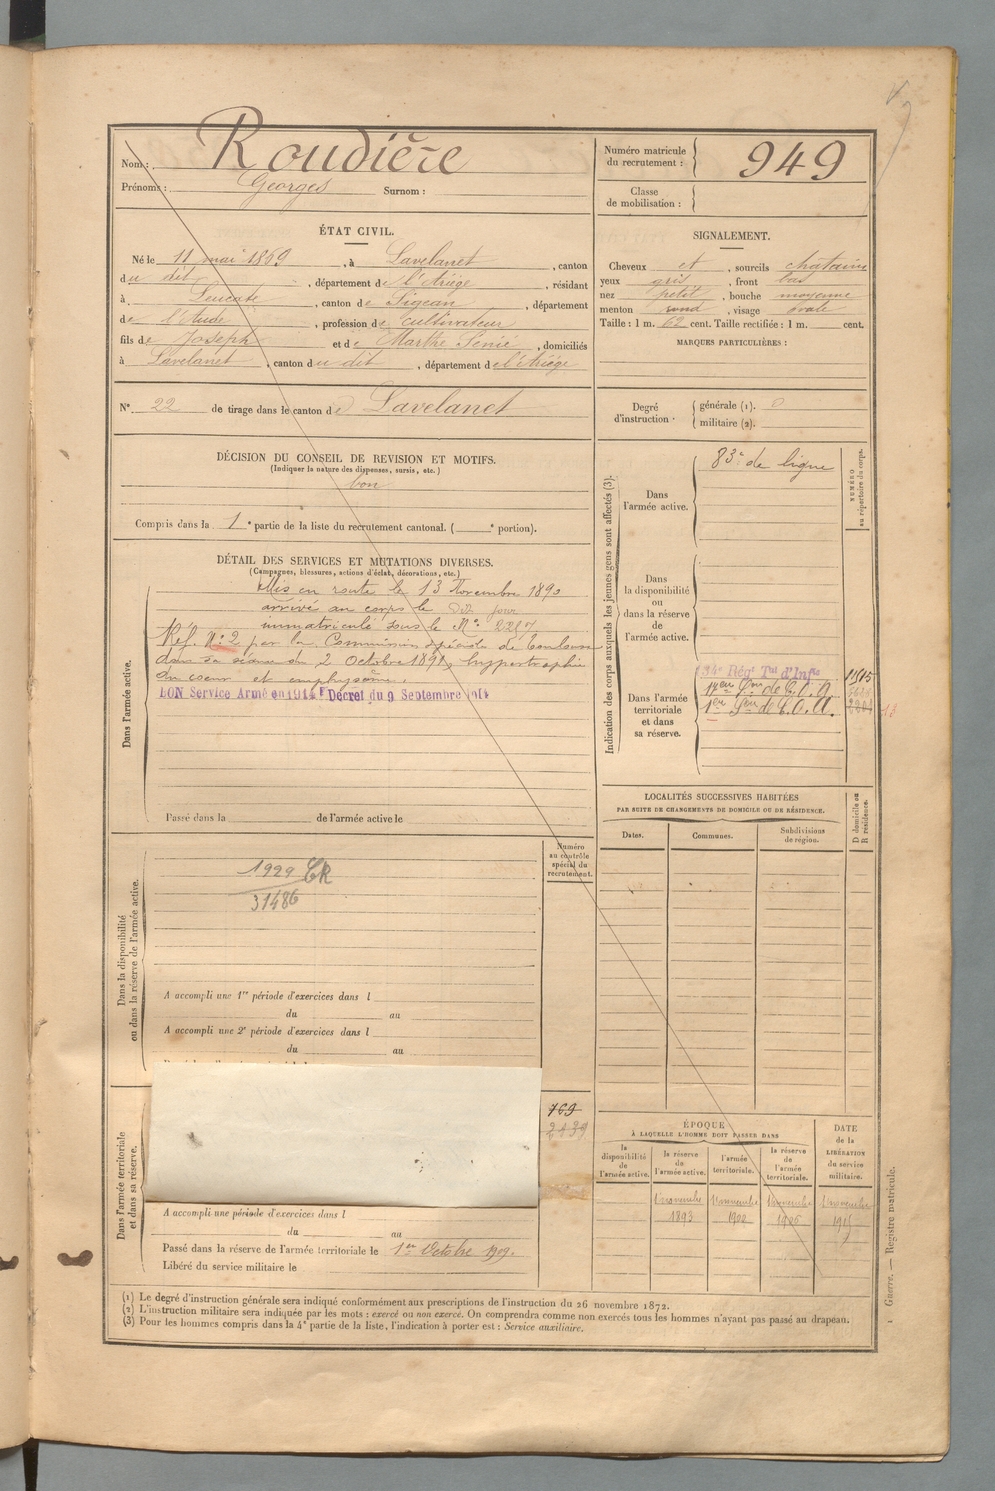 Nom : Roudière
Prénoms : Georges Surnom :
Numéro matricule du recrutement : 949
Classe de mobilisation :
ÉTAT CIVIL.
Né le 11 mai 1869, à Lavelanet, canton
du dit, département de l'Ariège, résidant
à Leucate, canton de Sigean, département
de l'Aude, profession de cultivateur
fils de Joseph et de Marthe Senié, domiciliés
à Lavelanet, canton du dit, département de l'Ariège
SIGNALEMENT.
Cheveux et, sourcils chatains
yeux gris, front bas
nez petit, bouche moyenne
menton rond, visage ovale
Taille : 1 m. 62 cent. Taille rectifiée : 1 m. cent.
MARQUES PARTICULIÈRES :
N° 22 de tirage dans le canton de Lavelanet
Degré d'instruction : générale (1). 0
militaire (2).
DÉCISION DU CONSEIL DE REVISION ET MOTIFS.
(Indiquer la nature des dispenses, sursis, etc.)
bon
Compris dans la 1e partie de la liste du recrutement cantonal. ( e portion).
DÉTAIL DES SERVICES ET MUTATIONS DIVERSES.
(Campagnes, blessures, actions d'éclat, décorations, etc.)
Dans l'armée active.
Mis en route le 13 Novembre 1890
arrivé au corps le dit jour
immatriculé sous le N°
Réf. N° 2 par la Commission spéciale de Toulouse
dans sa séance du 2 Octobre 1891, hypertrophie
du coeur et emphysème.
BON Service Armé en 1914 Décret du 9 Septembre 1914
Passé dans la de l'armée active le
Indication des corps auxquels les jeunes gens sont affectés (3).
NUMÉRO au répertoire du corps.
Dans l'armée active.
83e de ligne
Dans la disponibilité ou dans la réserve de l'armée active.
Dans l'armée territoriale et dans sa réserve.
134e Régt Tal d'Infie
17eme Son de C.O.A.
1ere Son de C.O.A.
LOCALITÉS SUCCESSIVES HABITÉES
PAR SUITE DE CHANGEMENTS DE DOMICILE OU DE RÉSIDENCE.
Dates. Communes. Subdivisions de région.
D domicile ou R résidence.
Dans la disponibilité ou dans la réserve de l'armée active.
Numéro au contrôle spécial du recrutement.
1929 CR
31486
A accompli une 1re période d'exercices dans l
du au
A accompli une 2e période d'exercices dans l
du au
Dans l'armée territoriale et dans sa réserve.
769
A accompli une période d'exercices dans l
du au
Passé dans la réserve de l'armée territoriale le 1er Octobre 1909.
Libéré du service militaire le
ÉPOQUE
À LAQUELLE L'HOMME DOIT PASSER DANS
la disponibilité de l'armée active.
la réserve de l'armée active.
l'armée territoriale.
la réserve de l'armée territoriale.
DATE de la LIBÉRATION du service militaire.
1 novembre 1 novembre 1 novembre 1 novembre
1893 1902 1915
(1) Le degré d'instruction générale sera indiqué conformément aux prescriptions de l'instruction du 26 novembre 1872.
(2) L'instruction militaire sera indiquée par les mots : exercé ou non exercé. On comprendra comme non exercés tous les hommes n'ayant pas passé au drapeau.
(3) Pour les hommes compris dans la 4e partie de la liste, l'indication à porter est : Service auxiliaire.
Guerre. — Registre matricule.